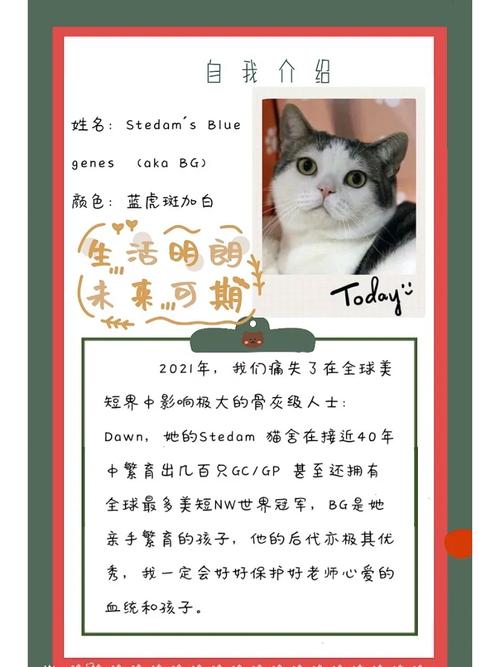 自我介绍
姓名：Stedam's Blue
genes （aka BG）
颜色：蓝虎斑加白
生活明朗
未来可期
Today
2021年，我们痛失了在全球美
短界中影响极大的骨灰级人士：
Dawn，她的Stedam 猫舍在接近40年
中繁育出几百只GC/GP 甚至还拥有
全球最多美短NW世界冠军，BG是她
亲手繁育的孩子，他的后代亦极其优
秀，我一定会好好保护好老师心爱的
血统和孩子。